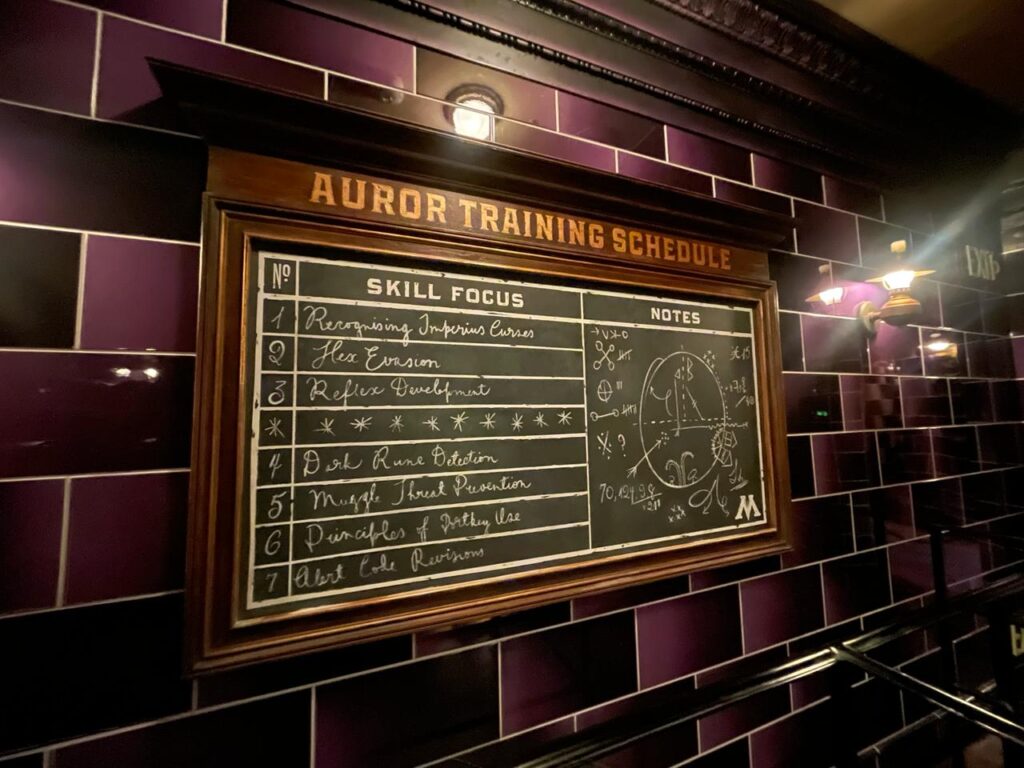 AUROR TRAINING SCHEDULE
Nº SKILL FOCUS NOTES
1 Recognising Imperius Curses
2 Hex Evasion
3 Reflex Development
4 Dark Rune Detection
5 Muggle Threat Prevention
6 Principles of Portkey Use
7 Alert Code Revisions
M
EXIT